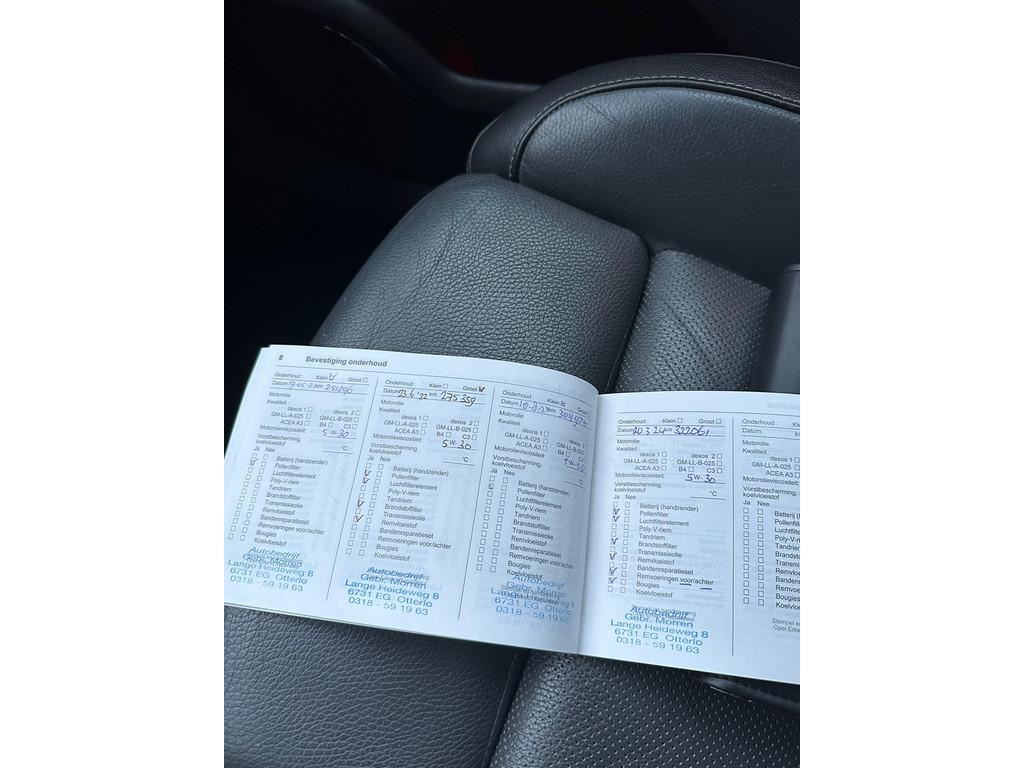 8 Bevestiging onderhoud
Onderhoud : Klein Groot
Datum km
Motorolie
Kwaliteit :
dexos 1 dexos 2
GM-LL-A-025 GM-LL-B-025
ACEA A3 B4 C3
Motorolieviscositeit: 5W-30
Vorstbescherming, koelvloeistof °C
Ja Nee
Batterij (handzender)
Pollenfilter
Luchtfilterelement
Poly-V-riem
Tandriem
Brandstoffilter
Transmissieolie
Remvloeistof
Bandenreparatieset
Remvoeringen voor/achter
Bougies
Koelvloeistof
Autobedrijf
Gebr. Morren
Lange Heideweg 8
6731 EG Otterlo
0318 - 59 19 63
Onderhoud : Klein Groot
Datum 23.6.'22 km 275359
Motorolie
Kwaliteit :
dexos 1 dexos 2
GM-LL-A-025 GM-LL-B-025
ACEA A3 B4 C3
Motorolieviscositeit: 5W-30
Vorstbescherming,
koelvloeistof °C
Ja Nee
Batterij (handzender)
Pollenfilter
Luchtfilterelement
Poly-V-riem
Tandriem
Brandstoffilter
Transmissieolie
Remvloeistof
Bandenreparatieset
Remvoeringen voor/achter
Bougies
Koelvloeistof
Autobedrijf
Gebr. Morren
Lange Heideweg 8
6731 EG Otterlo
0318 - 59 19 63
Onderhoud : Klein Groot
Datum km
Motorolie
Kwaliteit :
dexos 1 dexos 2
GM-LL-A-025 GM-LL-B-025
ACEA A3 B4 C3
Motorolieviscositeit: 5W-30
Vorstbescherming,
koelvloeistof °C
Ja Nee
Batterij (handzender)
Pollenfilter
Luchtfilterelement
Poly-V-riem
Tandriem
Brandstoffilter
Transmissieolie
Remvloeistof
Bandenreparatieset
Remvoeringen voor/achter
Bougies
Koelvloeistof
Autobedrijf
Gebr. Morren
Lange Heideweg 8
6731 EG Otterlo
0318 - 59 19 63
Onderhoud : Klein Groot
Datum 20.3.24 km 322061
Motorolie
Kwaliteit :
dexos 1 dexos 2
GM-LL-A-025 GM-LL-B-025
ACEA A3 B4 C3
Motorolieviscositeit: 5W-30
Vorstbescherming,
koelvloeistof °C
Ja Nee
Batterij (handzender)
Pollenfilter
Luchtfilterelement
Poly-V-riem
Tandriem
Brandstoffilter
Transmissieolie
Remvloeistof
Bandenreparatieset
Remvoeringen voor/achter
Bougies
Koelvloeistof
Autobedrijf
Gebr. Morren
Lange Heideweg 8
6731 EG Otterlo
0318 - 59 19 63
Onderhoud :
Datum
Motorolie
Kwaliteit :
dexos 1
GM-LL-A-025
ACEA A3
Motorolieviscositeit:
Vorstbescherming,
koelvloeistof
Ja Nee